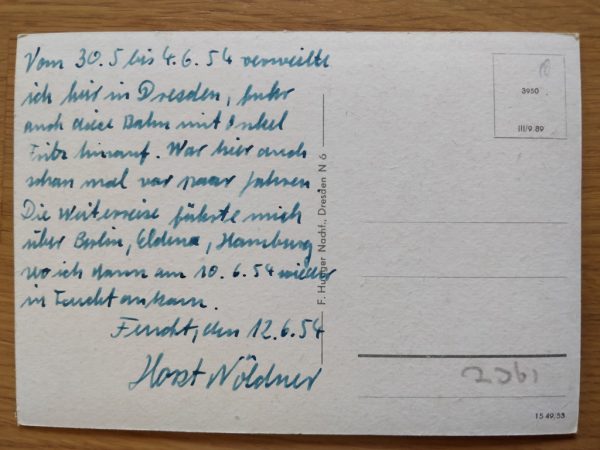 Vom 30.5 bis 4.6.54 verweilte
ich hier in Dresden, fuhr
auch diese Bahn mit Onkel
Fritz hinauf. War hier auch
schon mal vor paar Jahren.
Die Weiterreise führte mich
über Berlin, Eldena, Hamburg
wo ich dann am 10.6.54 wieder
in Feucht ankam.
Feucht, den 12.6.54
Horst Nöldner
F. Hunger Nachf., Dresden N 6
3950
III/9 89
15 49/53